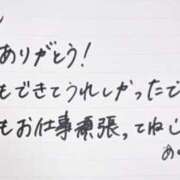 ありがとう!
もできてうれしかったで
もお仕事頑張ってねし
あ